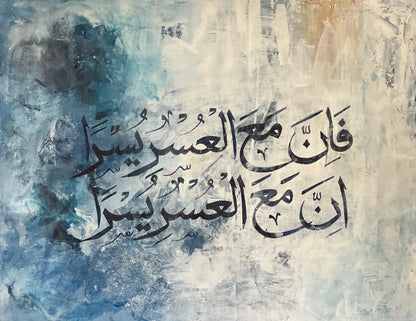 فَاِنَّ مَعَ الْعُسْرِ يُسْرًا
اِنَّ مَعَ الْعُسْرِ يُسْرًا